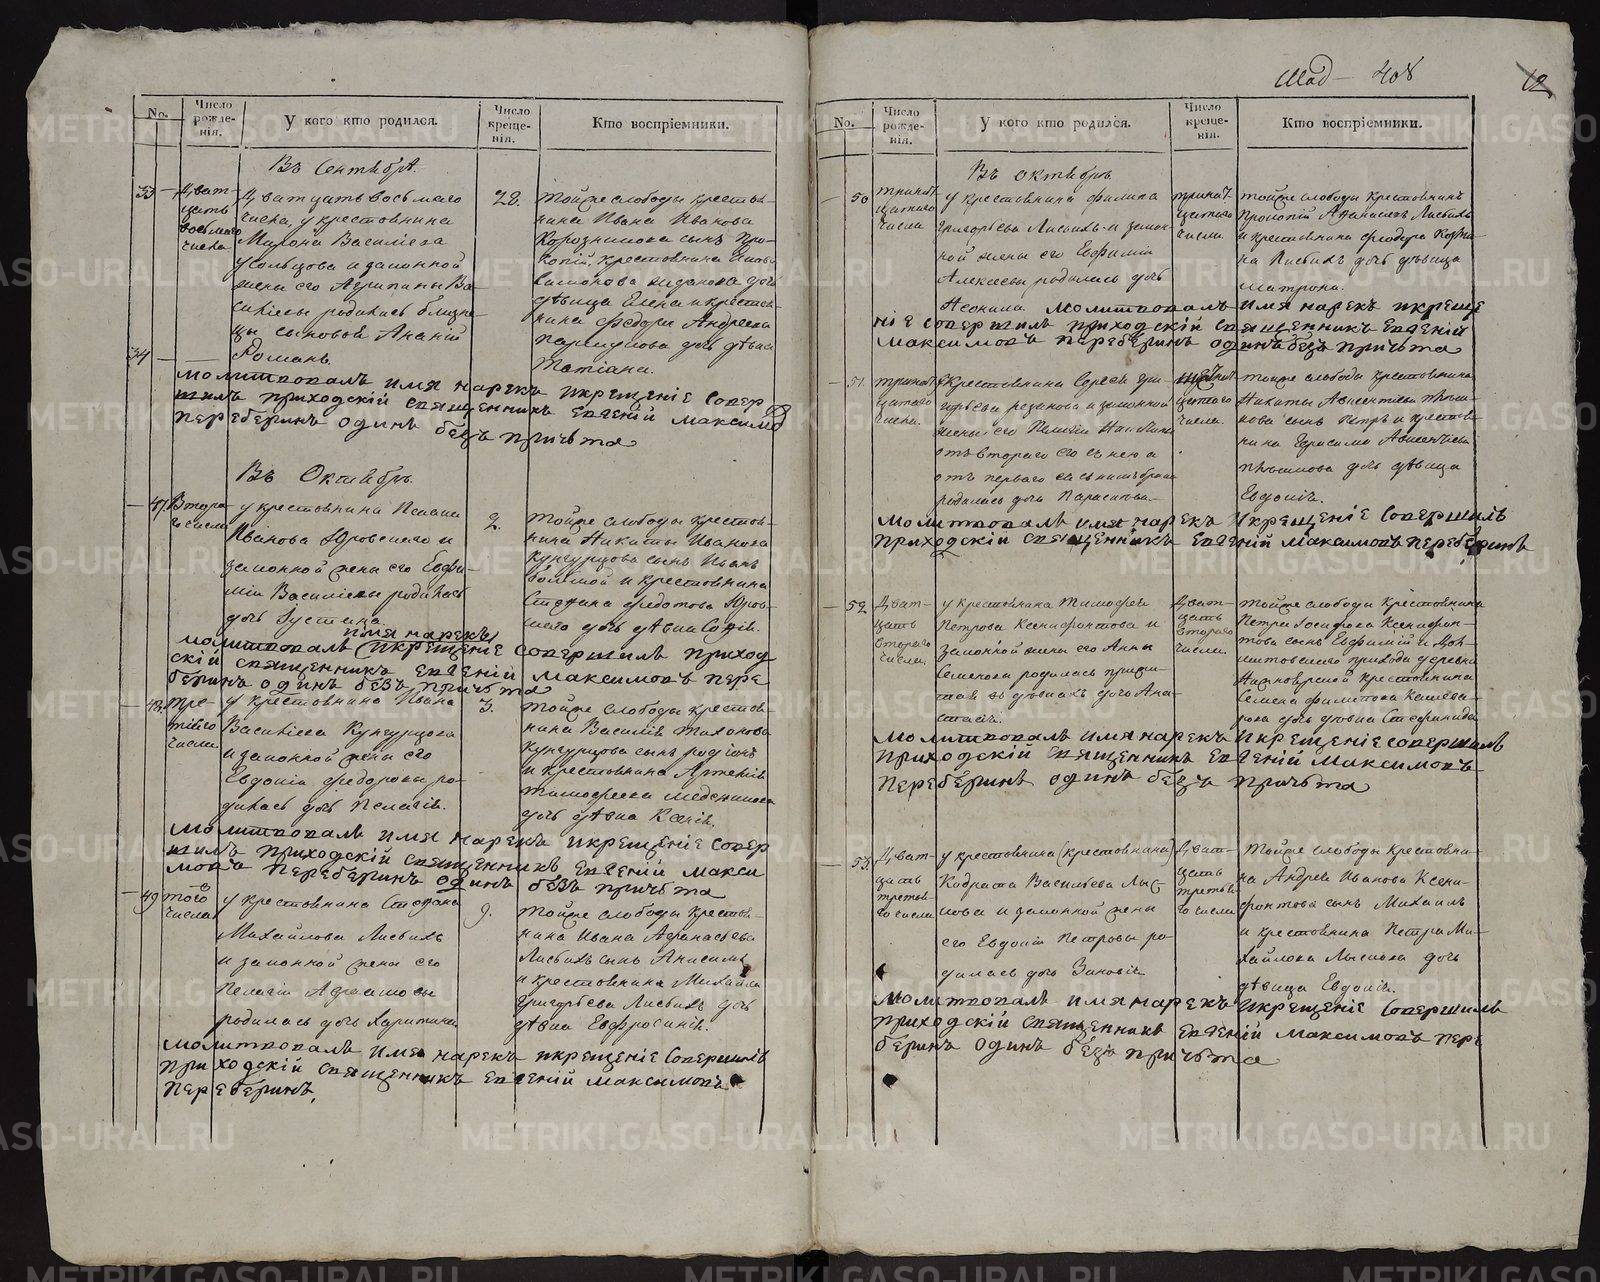 Шад – 408
12
No.
Число рожденія.
У кого кто родился.
Число крещенія.
Кто воспріемники.
Въ Сентябрѣ.
33
Дват-
цать
восьмаго
числа
Дватцать восьмаго
числа, у крестьянина
Василіева
Усольцова и законной
жены его Агрипины Ва-
родились близне-
цы сыновья Ананій
28.
Тойже слободы крестья-
нина Ивана Иванова
сынъ Про-
копій, крестьянина
дочь
дѣвица Елена и крестья-
нина Федора Андреева
дочь дѣвица
Татіана.
34
Романъ
молитвовалъ имя нарекъ икрещеніе совер
шилъ приходскій священникъ Евгеній Максимо
Переберинъ одинъ безъ причьта
Въ Октябрѣ.
47.
Втора-
го числа
у крестьянина
Иванова Юровскаго и
законной жены его Евфи-
міи Василіевы родилась
дочь Іустина.
2.
Тойже слободы крестья-
нина Никиты Иванова
Кунгурцова сынъ Иванъ
большой и крестьянина
Стефана Федотова Юров-
скаго дочь дѣвица Софія.
имя нарекъ
молитвовалъ икрещеніе совершилъ приход
скій священникъ Евгеній Максимовъ пере
беринъ одинъ безъ причьта
48.
Тре-
тьяго
числа
у крестьянина Ивана
Василіева Кунгурцова
и законной жены его
Евдокіи Федоровы ро-
дилась дочь Пелагія.
3.
Тойже слободы крестья-
нина Василія Тихонова
Кунгурцова сынъ Родіонъ
и крестьянина Артемія
Тимофеева
дочь дѣвица Ксенія.
молитвовалъ имя нарекъ икрещеніе совер
шилъ приходскій священникъ Евгеній Макси
мовъ Переберинъ одинъ безъ причьта
49
того
числа
у крестьянина Стефана
Михайлова Лисьихъ
и законной жены его
Пелагіи
родилась дочь Харитина
9.
Тойже слободы крестья-
нина Ивана Афанасьева
Лисьихъ сынъ Анисимъ
и крестьянина Михайла
Григорьева Лисьихъ дочь
дѣвица Евфросинія.
молитвовалъ имя нарекъ икрещеніе совершилъ
приходскій священникъ Евгеній Максимовъ
Переберинъ,
No.
Число рожденія.
У кого кто родился.
Число крещенія.
Кто воспріемники.
Въ октябрѣ
50
тринат-
цатаго
числа
у крестьянина Филипа
Григорьева Лисьихъ и закон-
ной жены его Евфиміи
Алексеевы родилась дочь
Неонила
тринат-
цатаго
числа.
тойже слободы крестьянинъ
Прокопій Афанасьевъ Лисьихъ
и крестьянина Феодора
на Лисьихъ дочь дѣвица
Матрона.
молитвовалъ имя нарекъ икреще
ніе совершилъ приходскій священникъ Евгеній
Максимовъ Переберинъ одинъ безъ причьта
51.
тринат-
цатаго
числа.
у крестьянина Сергея Гри-
горьева и законной
жены его Пелагіи
отъ втораго его съ нею а
отъ перваго ея съ нимъ брака
родилась дочь Параскева.
цатаго
числа.
тойже слободы крестьянина
Никиты Авксентьева
сынъ Петръ и крестья-
нина Герасима Авксентьева
дочь дѣвица
Евдокія.
молитвовалъ имя нарекъ икрещеніе совершилъ
приходскій священникъ Евгеній Максимовъ переберинъ
52
Дват-
цать
втораго
числа
у крестьянина Тимофея
Петрова Ксенофонтова и
законной жены его Анны
Семеновы родилась
дочь Ана-
стасія.
Дват-
цать
втораго
числа.
тойже слободы крестьянина
Петра Іосифова Ксенофон-
това сынъ Евфимій и
прихода деревни
крестьянина
Семена Филипова
рова дочь дѣвица Стефанида
молитвовалъ имя нарекъ икрещеніе совершилъ
приходскій священникъ Евгеній Максимовъ
Переберинъ одинъ безъ причьта
53.
Дват-
цать
третья-
го числа
у крестьянина (крестьянина)
Кодрата Васильева Лыс-
кова и законной жены
его Евдокіи Петровы ро-
дилась дочь Зиновія
Дват-
цать
третья-
го числа
Тойже слободы крестьяни-
на Андрея Иванова Ксено-
фонтова сынъ Михаилъ
и крестьянина Петра Ми-
хайлова Лыскова дочь
дѣвица Евдокія.
молитвовалъ имя нарекъ икрещеніе совершилъ
приходскій священникъ Евгеній Максимовъ пере
беринъ одинъ безъ причьта
METRIKI.GASO-URAL.RU